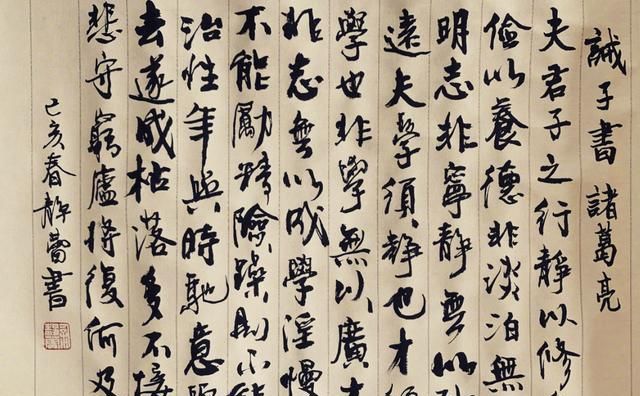 誡子書 諸葛亮
夫君子之行靜以修
儉以養德非淡泊無
明志非寧靜無以
遠夫學須靜也才須
學也非學無以廣才
非志無以成學淫慢
不能勵精險躁則不能
治性年與時馳意與
去遂成枯落多不接
悲守窮廬將復何及
己亥春靜蕾書